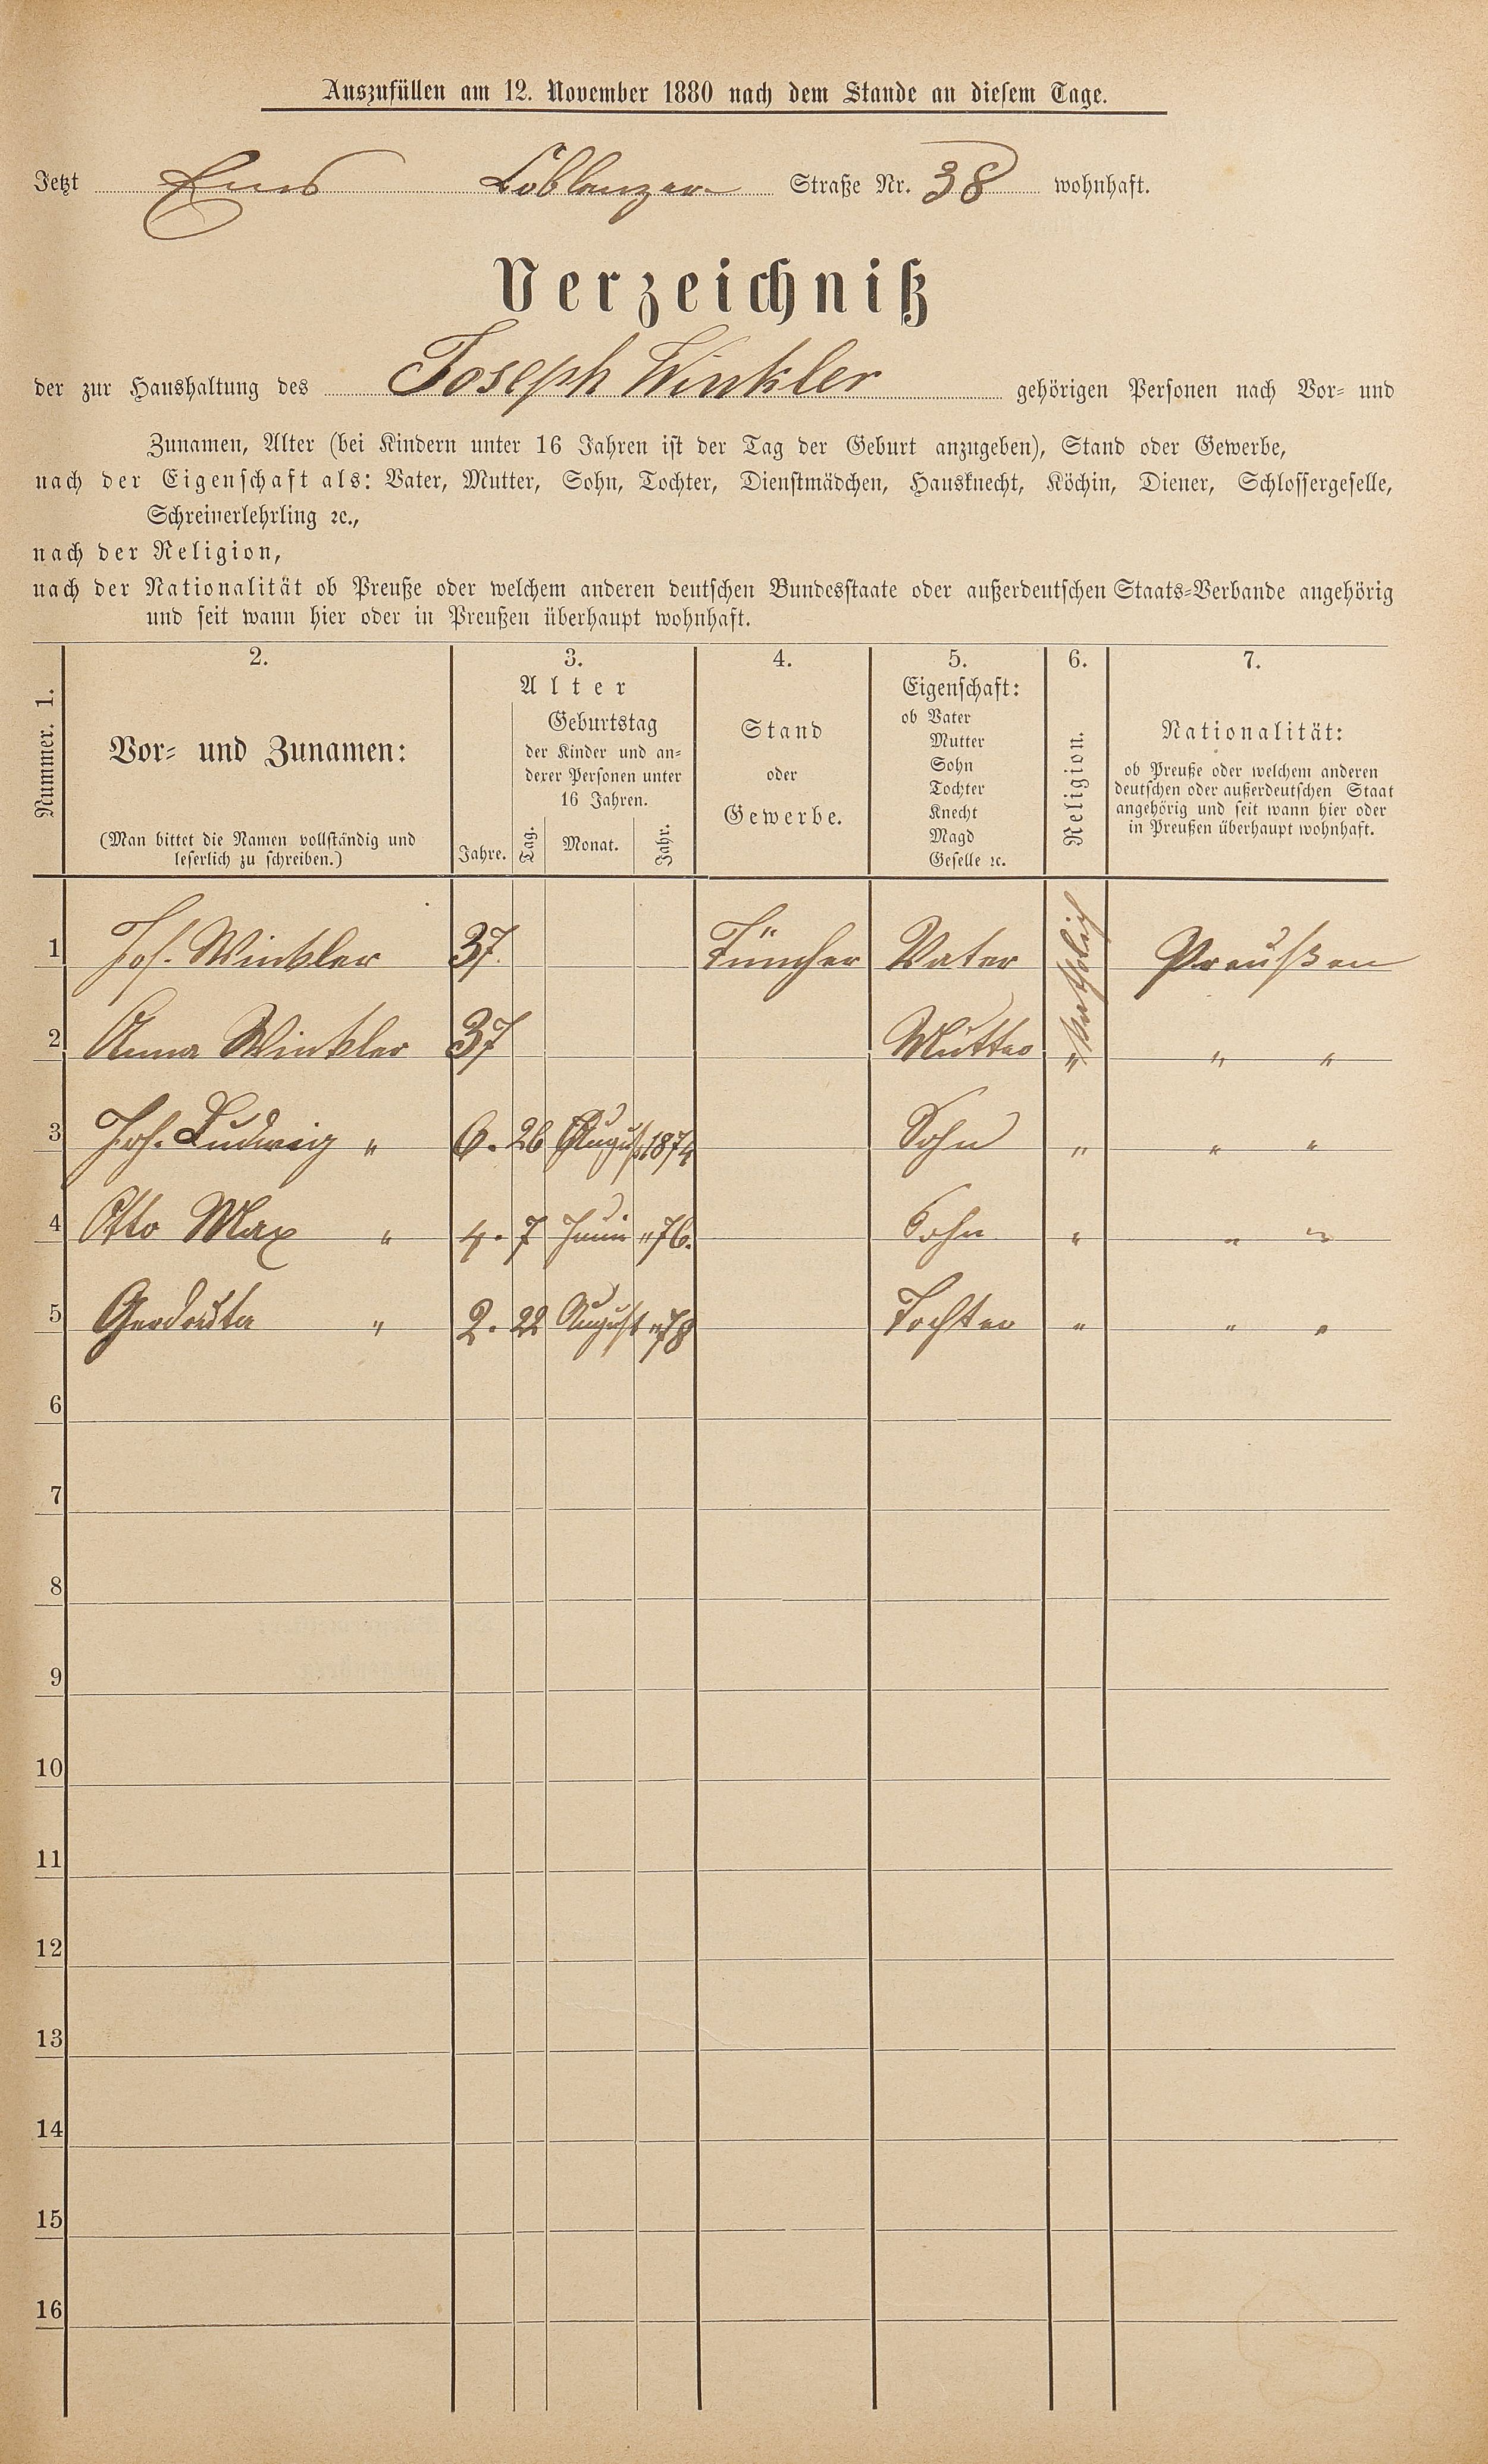 Auszufüllen am 12. November 1880 nach dem Stande an diesem Tage.
Jetzt Ems Coblenzer Straße Nr. 38 wohnhaft.
Verzeichniß
der zur Haushaltung des Joseph Winkler gehörigen Personen nach Vor- und
Zunamen, Alter (bei Kindern unter 16 Jahren ist der Tag der Geburt anzugeben), Stand oder Gewerbe,
nach der Eigenschaft als: Vater, Mutter, Sohn, Tochter, Dienstmädchen, Hausknecht, Köchin, Diener, Schlossergeselle,
Schreinerlehrling ꝛc.,
nach der Religion,
nach der Nationalität ob Preuße oder welchem anderen deutschen Bundesstaate oder außerdeutschen Staats-Verbande angehörig
und seit wann hier oder in Preußen überhaupt wohnhaft.
Nummer. 1.
2.
Vor- und Zunamen:
(Man bittet die Namen vollständig und
leserlich zu schreiben.)
3.
Alter
Jahre.
Geburtstag
der Kinder und an-
derer Personen unter
16 Jahren.
Tag. Monat. Jahr.
4.
Stand
oder
Gewerbe.
5.
Eigenschaft:
ob Vater
Mutter
Sohn
Tochter
Knecht
Magd
Geselle ꝛc.
6.
Religion.
7.
Nationalität:
ob Preuße oder welchem anderen
deutschen oder außerdeutschen Staat
angehörig und seit wann hier oder
in Preußen überhaupt wohnhaft.
1 Jos. Winkler 37. Tüncher Vater Katholisch Preußen
2 Anna Winkler 37 Mutter " " "
3 Joh. Ludwig " 6. 26 August 1874 Sohn " " "
4 Otto Max " 4. 7 Juni " 76. Sohn " " "
5 " 2. 22 August " 78 Tochter " " "
6
7
8
9
10
11
12
13
14
15
16